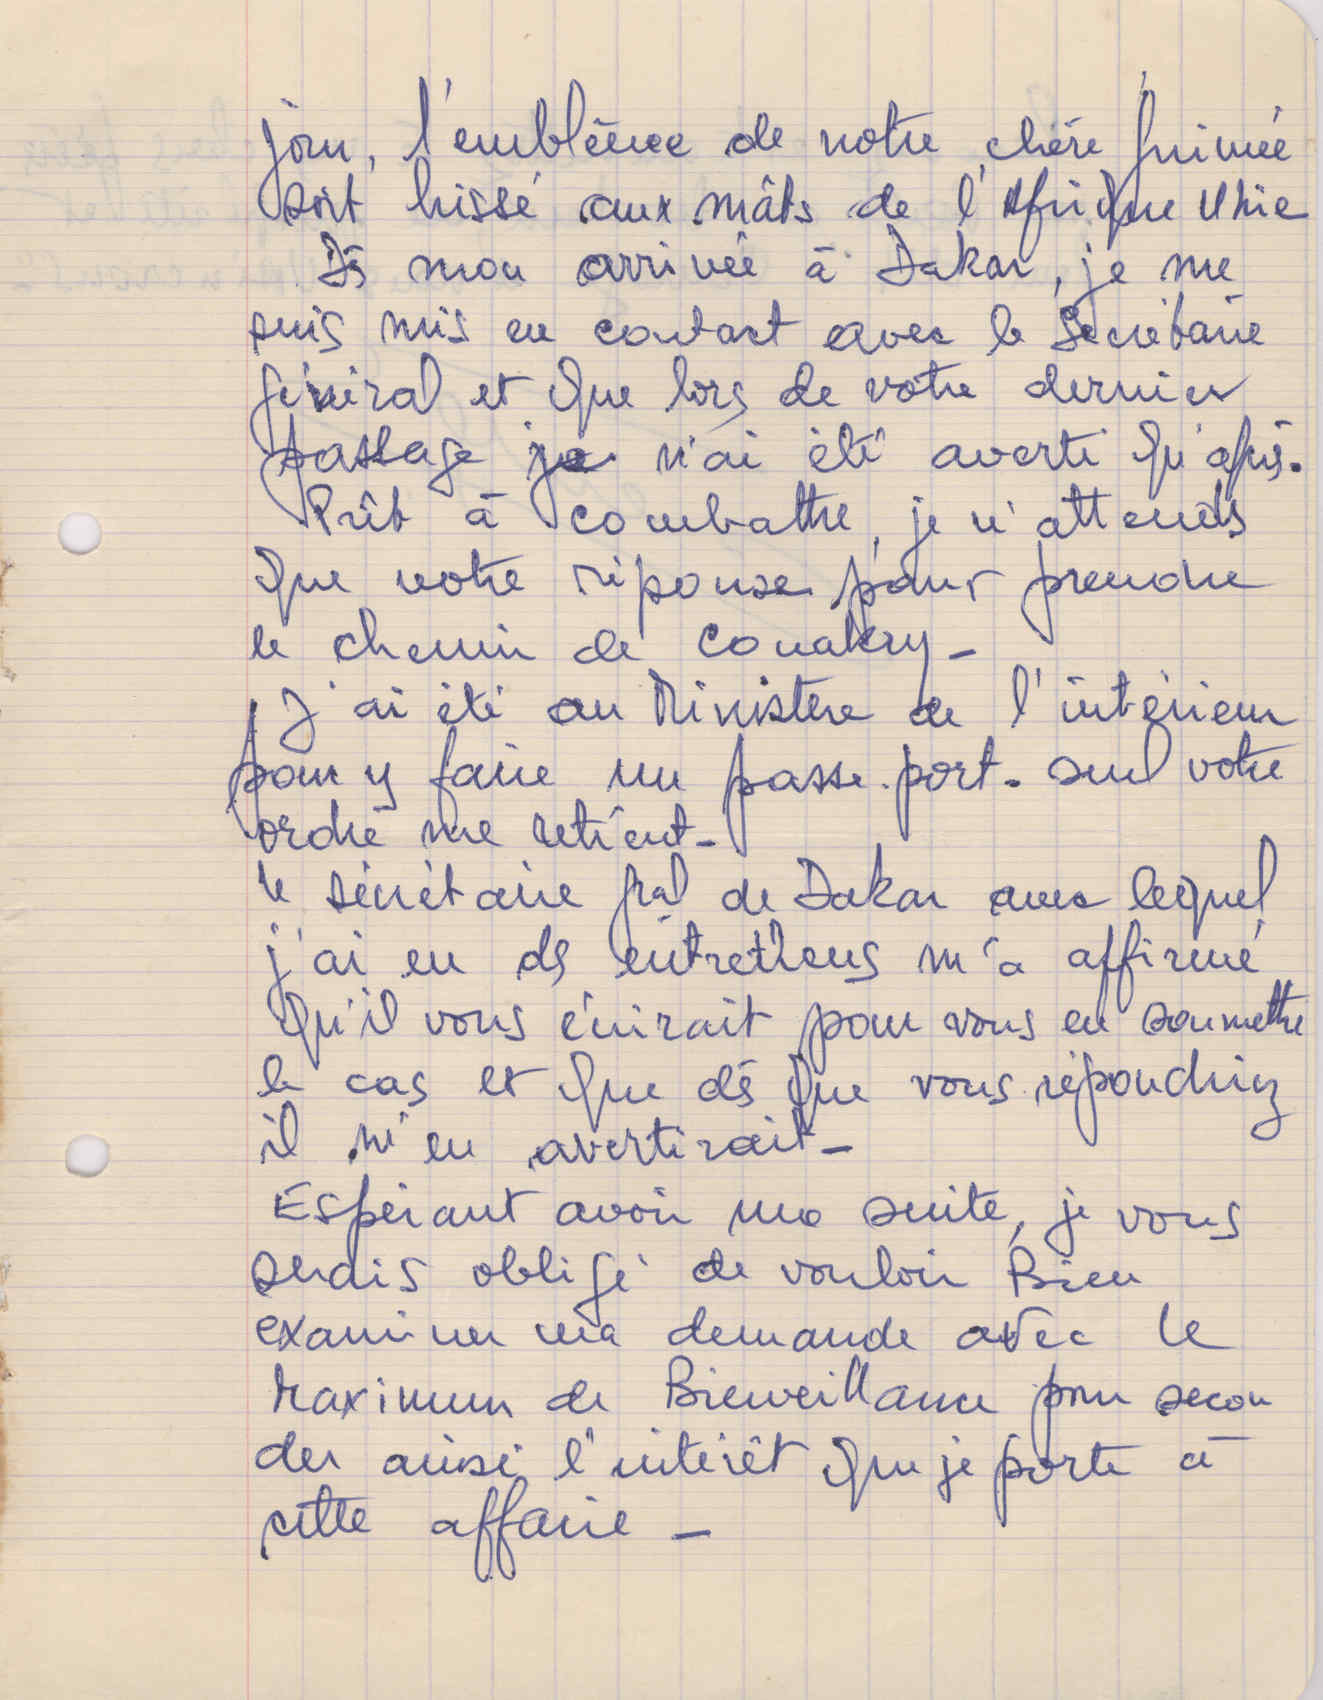 jour, l'emblème de notre chère Guinée
soit hissé aux mâts de l'Afrique Unie
Dès mon arrivée à Dakar, je me
suis mis en contact avec le Secrétaire
général et que lors de votre dernier
passage je n'ai été averti qu'après.
Prêt à combattre, je n'attends
que votre réponse pour prendre
le chemin de Conakry -
J'ai été au Ministère de l'intérieur
pour y faire un passe-port. seul votre
ordre me retient -
le sécrétaire gral de Dakar avec lequel
j'ai eu des entretiens m'a affirmé
qu'il vous écrirait pour vous en soumettre
le cas et que dès que vous répondriez
il m'en avertirait -
Espérant avoir une suite, je vous
serais obligé de vouloir Bien
examiner ma demande avec le
Maximum de Bienveillance pour secon
der ainsi l'intérêt que je porte à
cette affaire -